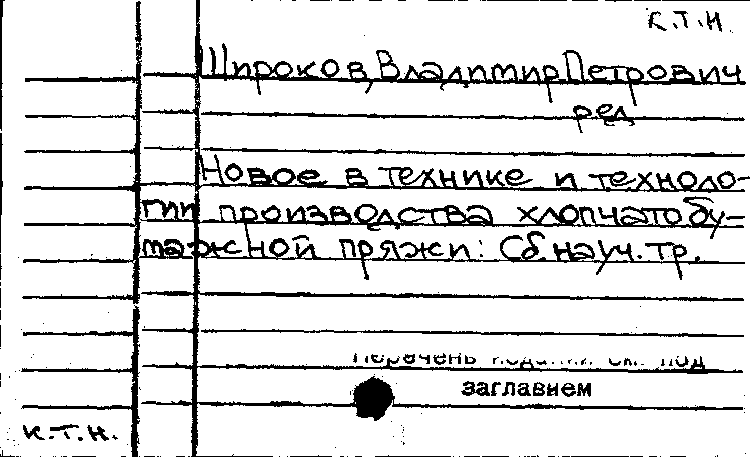 К.Т.Н.
Широков, Владимир Петрович
ред
Новое в технике и техноло-
гии производства хлопчатобу-
мажной пряжи: Сб. науч. тр.
Перечень изданий см. под
заглавием
К.Т.Н.